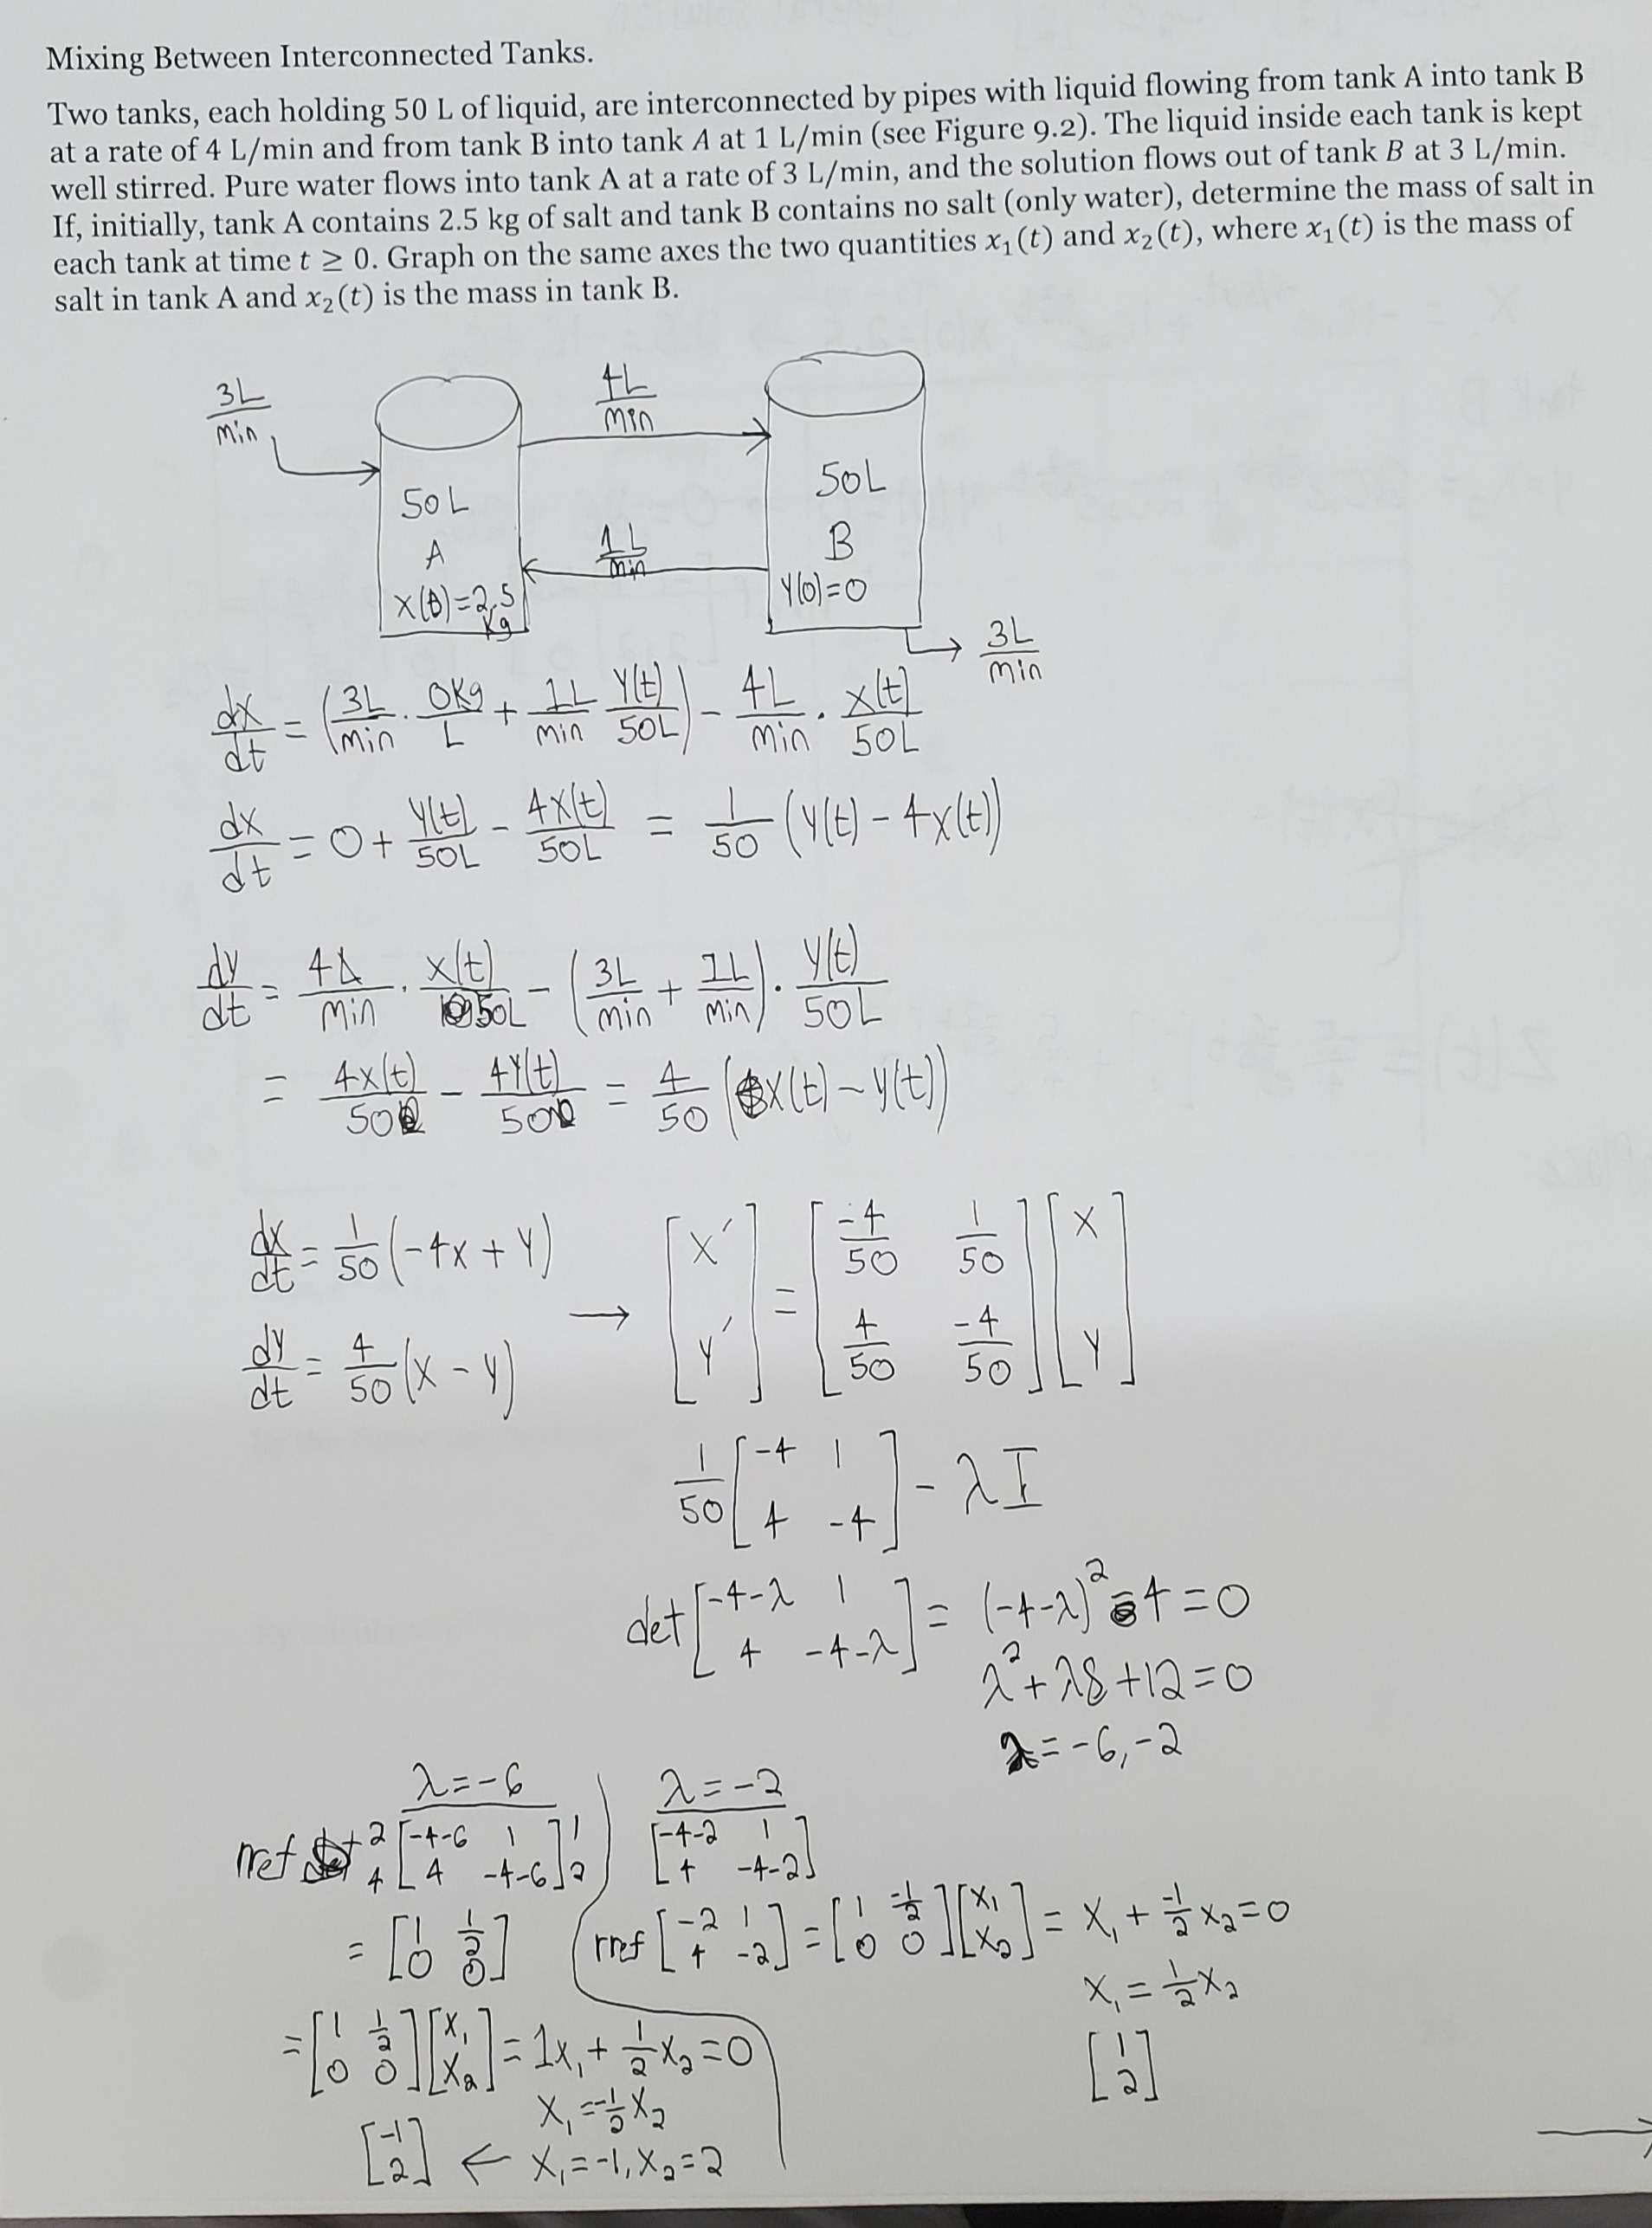 Mixing Between Interconnected Tanks.
Two tanks, each holding 50 L of liquid, are interconnected by pipes with liquid flowing from tank A into tank B
at a rate of 4 L/min and from tank B into tank A at 1 L/min (see Figure 9.2). The liquid inside each tank is kept
well stirred. Pure water flows into tank A at a rate of 3 L/min, and the solution flows out of tank B at 3 L/min.
If, initially, tank A contains 2.5 kg of salt and tank B contains no salt (only water), determine the mass of salt in
each tank at time t ≥ 0. Graph on the same axes the two quantities x₁(t) and x₂(t), where x₁(t) is the mass of
salt in tank A and x₂(t) is the mass in tank B.
3L/min
4L/min
50L
A
x(0)=2.5 kg
1L/min
50L
B
y(0)=0
3L/min
dx/dt = (3L/min · 0kg/L + 1L/min y(t)/50L) - 4L/min · x(t)/50L
dx/dt = 0 + y(t)/50L - 4x(t)/50L = 1/50 (y(t) - 4x(t))
dy/dt = 4L/min · x(t)/50L - (3L/min + 1L/min) · y(t)/50L
= 4x(t)/50 - 4y(t)/50 = 4/50 (x(t) - y(t))
dx/dt = 1/50 (-4x + y)
dy/dt = 4/50 (x - y)
→ [x' ; y'] = [-4/50 1/50 ; 4/50 -4/50] [x ; y]
1/50 [-4 1 ; 4 -4] - λI
det [-4-λ 1 ; 4 -4-λ] = (-4-λ)² - 4 = 0
λ² + λ8 + 12 = 0
λ = -6, -2
λ = -6
rref [-4-6 1 ; 4 -4-6]
= [1 1/2 ; 0 0]
= [1 1/2 ; 0 0] [x₁ ; x₂] = 1x₁ + 1/2 x₂ = 0
x₁ = -1/2 x₂
[-1 ; 2] ← x₁ = -1, x₂ = 2
λ = -2
[-4-2 1 ; 4 -4-2]
rref [-2 1 ; 4 -2] = [1 -1/2 ; 0 0] [x₁ ; x₂] = x₁ + -1/2 x₂ = 0
x₁ = 1/2 x₂
[1 ; 2]
→